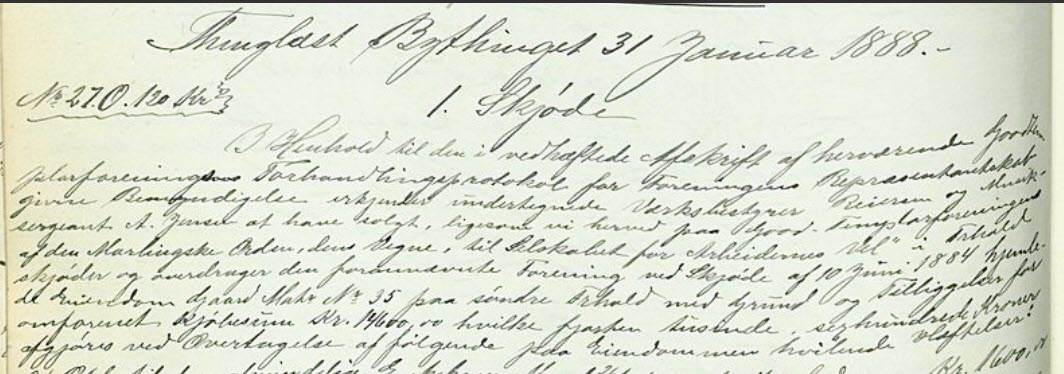 Thinglæst Bythinget 31 Januar 1888.-
No 27.
1. Skjøde
I Henhold til den i vedhæftede Afskrift af herværende Goodtem
plarforenings Forhandlingsprotokol for Foreningens Repræsentantskab
givne Bemyndigelse erkjender undertegnede Værksbestyrer Reiersen og Munk-
sergeant A. Jensen at have solgt, ligesom vi herved paa Good-Templarforeningens
af den Marlingske Orden, dens Vegne, til Selskabet for Arbeidernes Vel" i Frhald
skjøder og overdrager den forannævnte Forening ved Skjøde af 10 Juni 1884 hjemle-
de Eiendom Gaard Matr No 35 paa søndre Frhald med Grund og Tilliggelser for
omforenet Kjøbesum Kr. 14600,00 hvilke fjorten tusinde, sexhundrede Kroner
afgjøres ved Overtagelse af følgende paa Eiendommen hvilende Hæftelser:
Kr. 1600,00